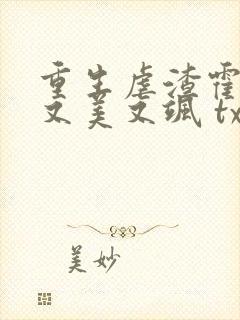 重生虐渣霍
又美又飒 tx
美妙